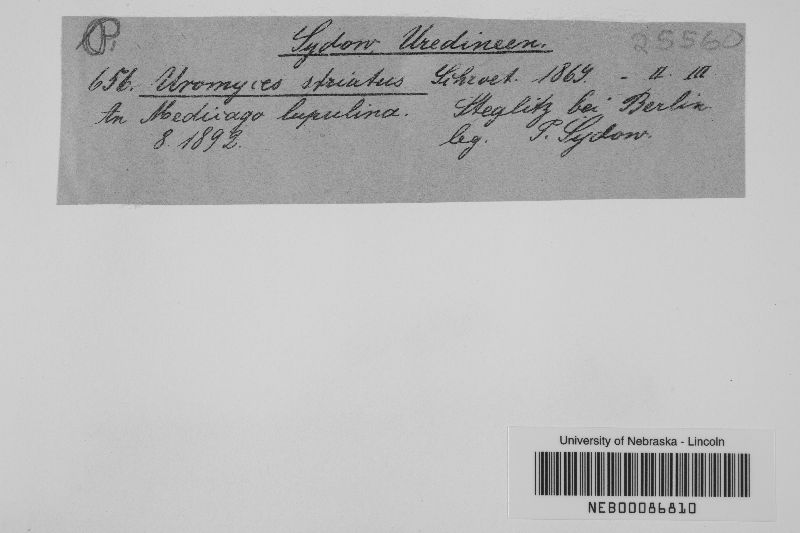 P.
Sydow, Uredineen.
25560
656. Uromyces striatus Schroet. 1869. - II. III
An Medicago lupulina. Steglitz bei Berlin
8. 1892. leg. P. Sydow.
University of Nebraska - Lincoln
NEB00086810